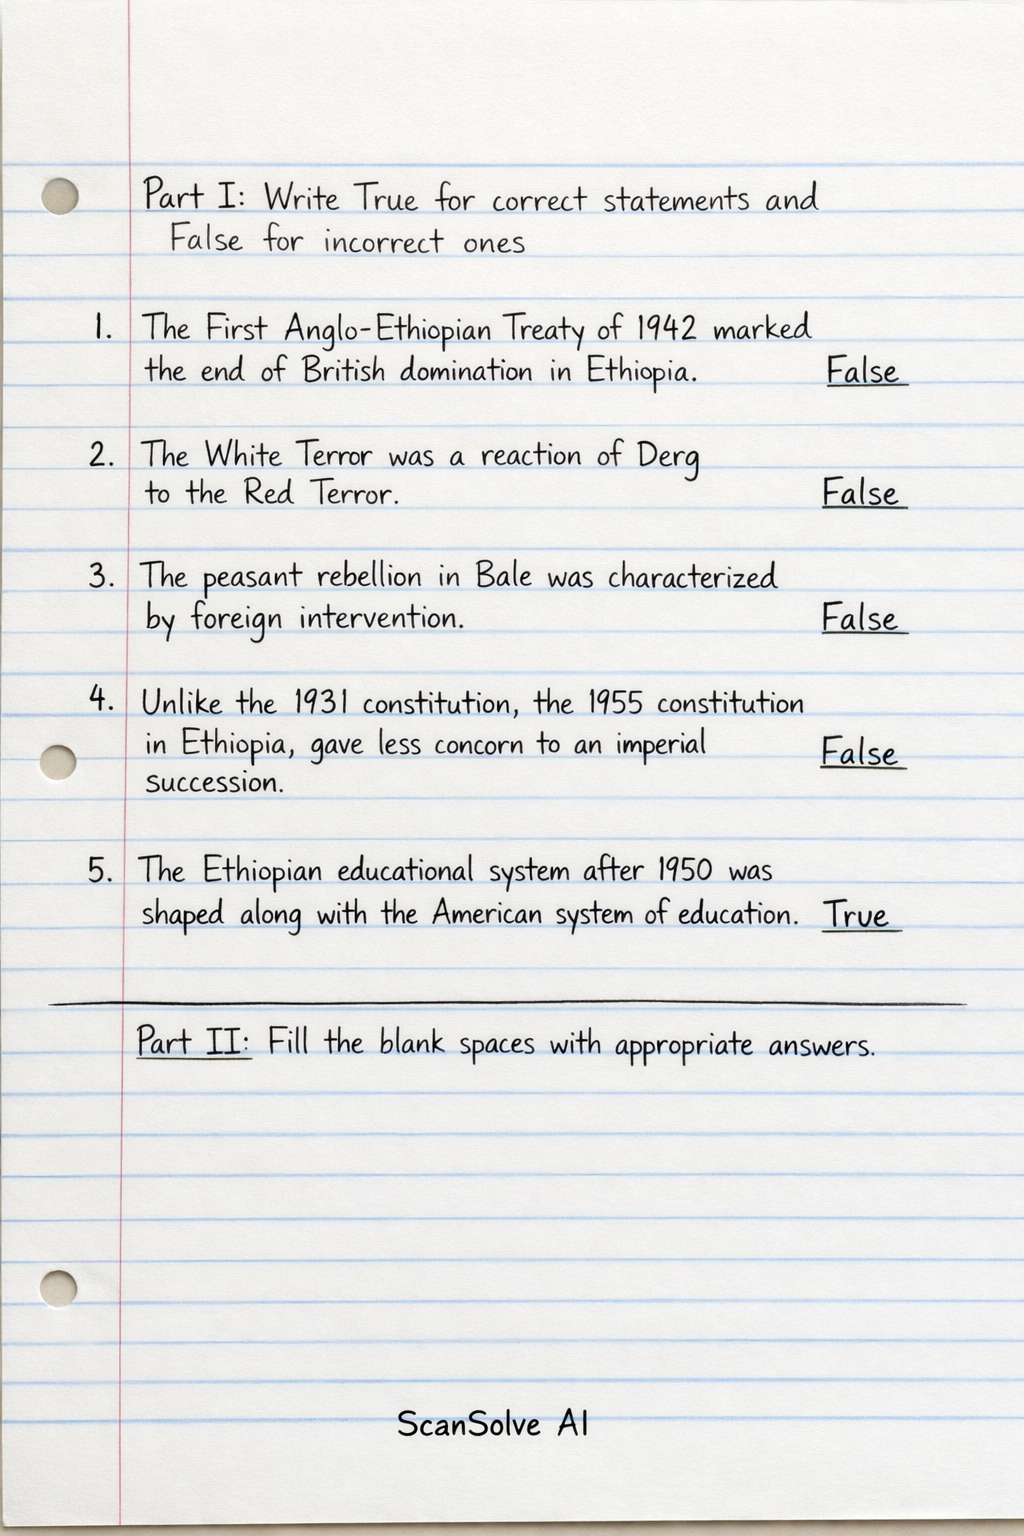 Part I: Write True for correct statements and
False for incorrect ones
1. The First Anglo-Ethiopian Treaty of 1942 marked
the end of British domination in Ethiopia. False
2. The White Terror was a reaction of Derg
to the Red Terror. False
3. The peasant rebellion in Bale was characterized
by foreign intervention. False
4. Unlike the 1931 constitution, the 1955 constitution
in Ethiopia, gave less concorn to an imperial False
succession.
5. The Ethiopian educational system after 1950 was
shaped along with the American system of education. True
Part II: Fill the blank spaces with appropriate answers.
ScanSolve AI